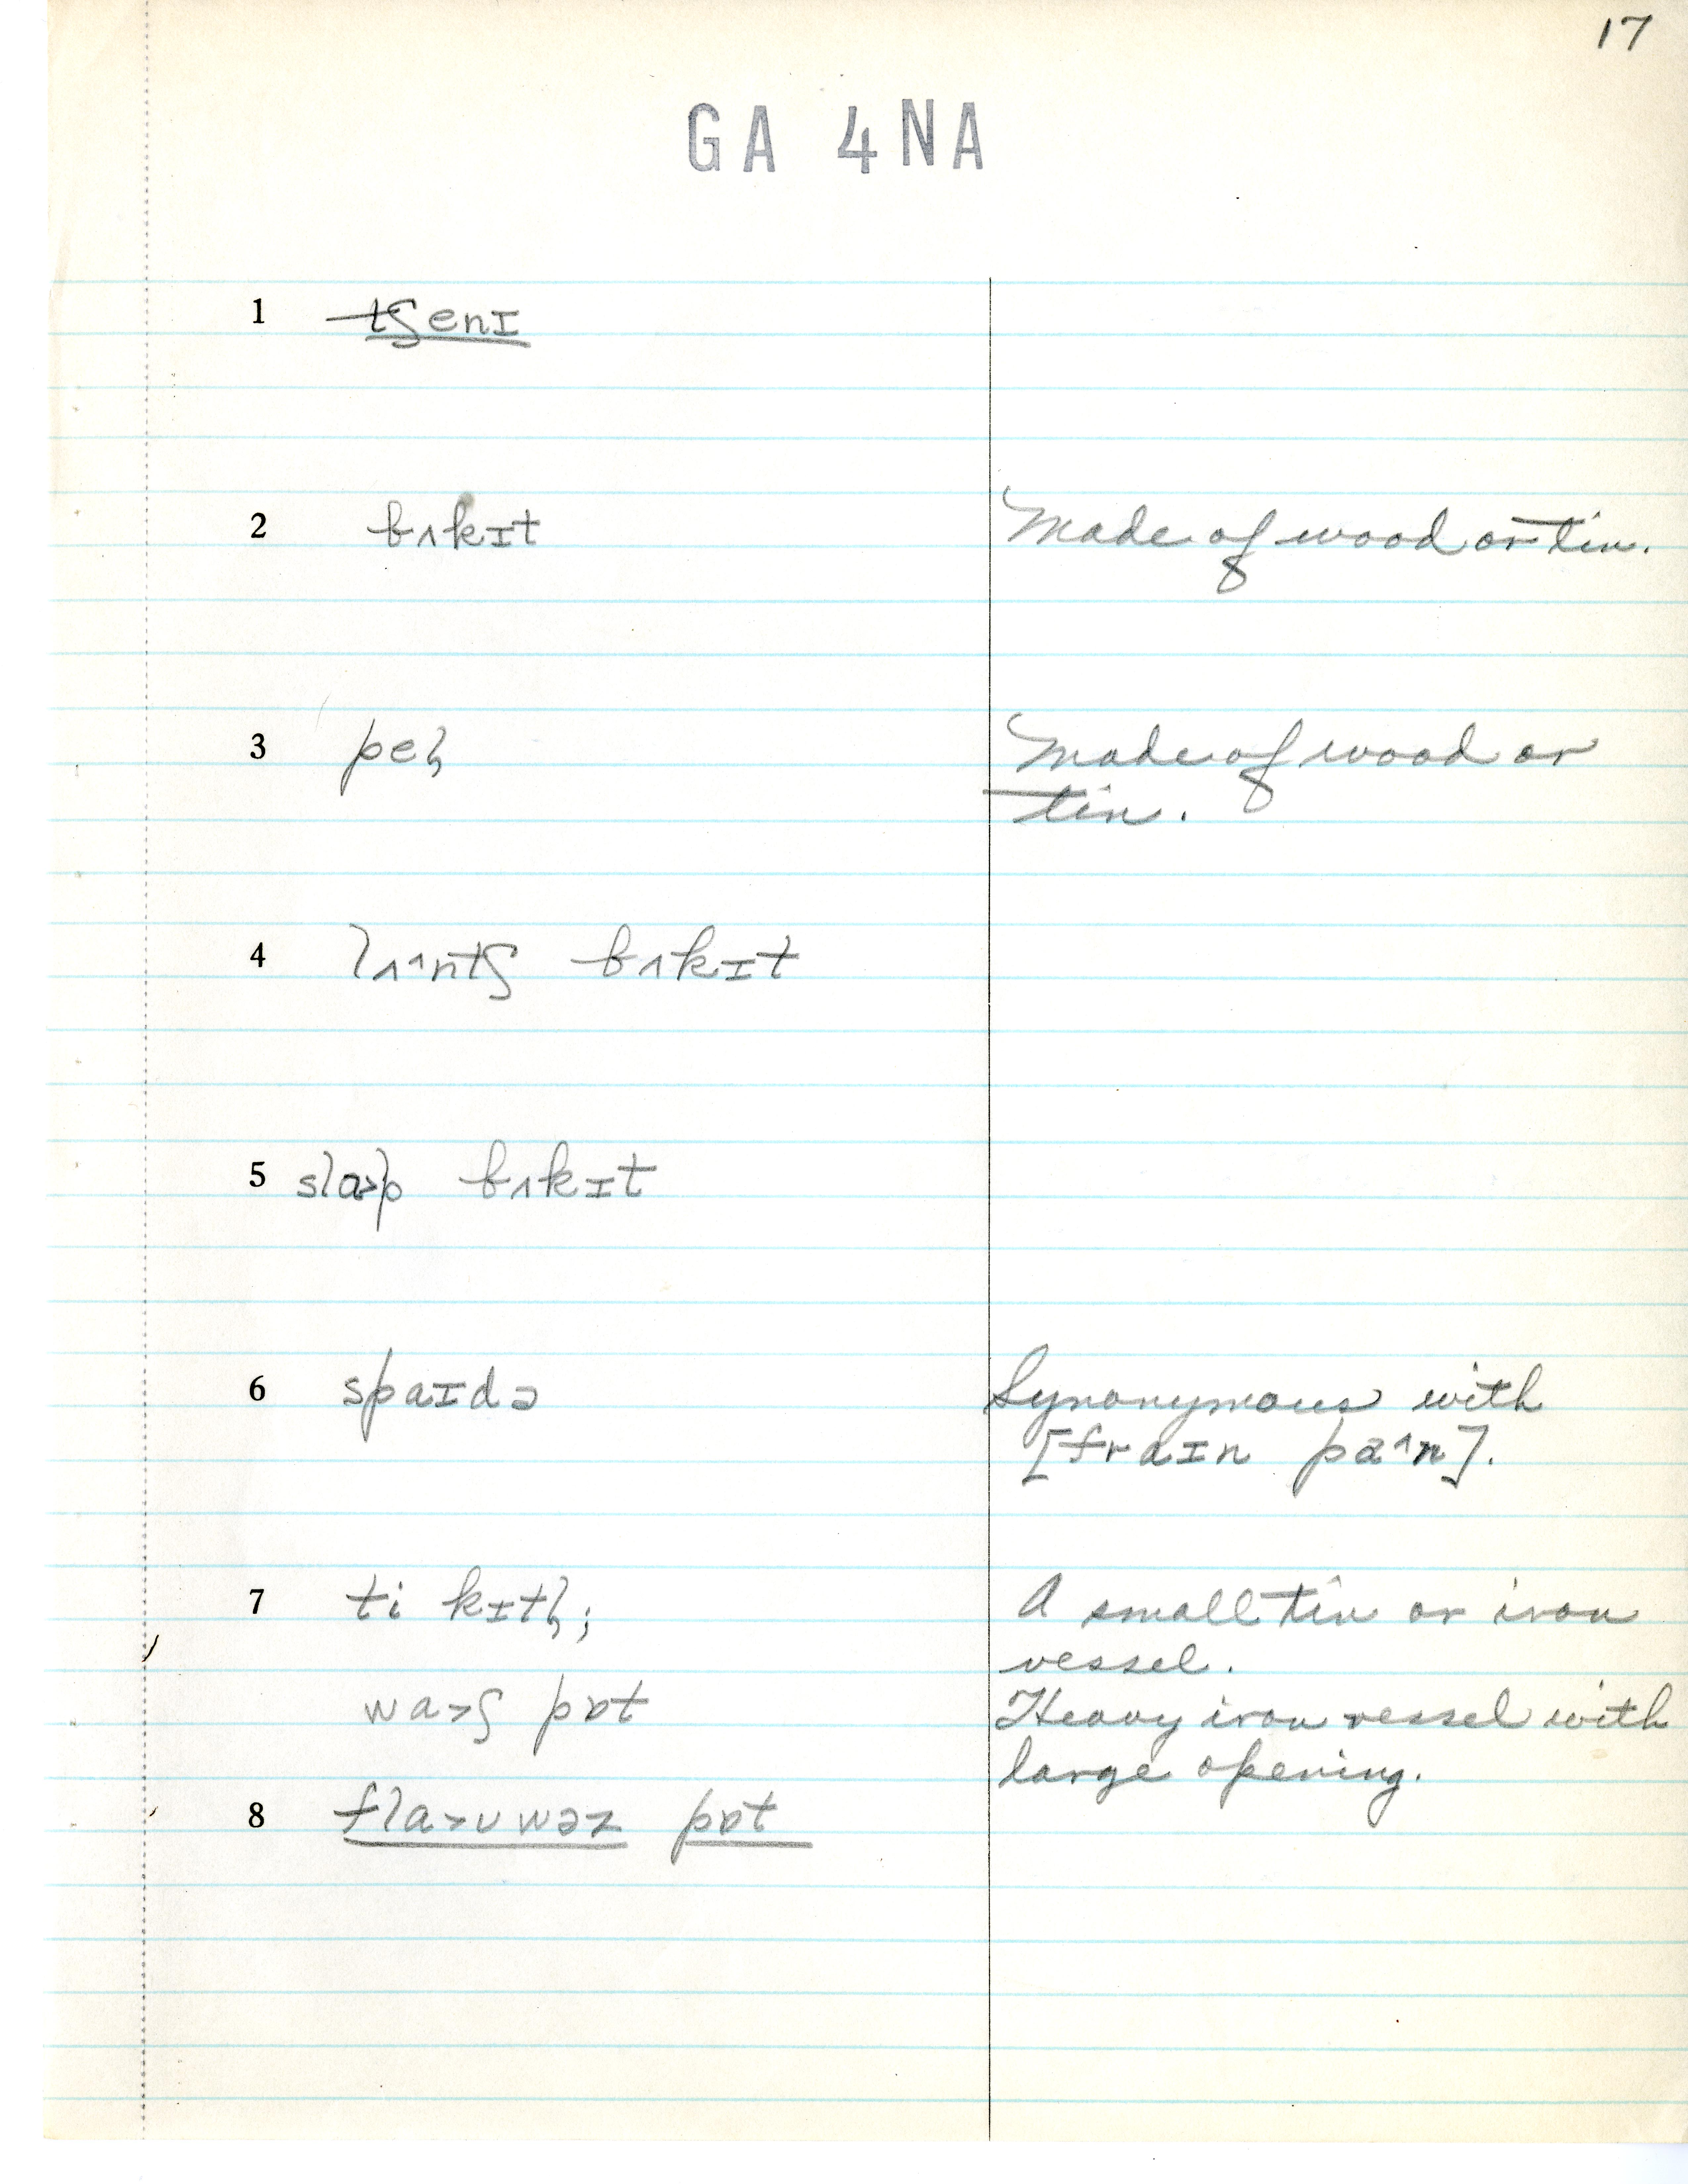 17
GA 4NA
1 tʃenɪ
2 bʌkɪt Made of wood or tin.
3 pel̩ Made of wood or
tin.
4 lʌ˄ntʃ bʌkɪt
5 slɑ˃p bʌkɪt
6 spaɪdə Synonymous with
[fraɪn pæ˄n].
7 ti kɪtl̩; A small tin or iron
vessel.
wɑ˃ʃ pɒt Heavy iron vessel with
large opening.
8 flɑ˃ʊwəz pɒt